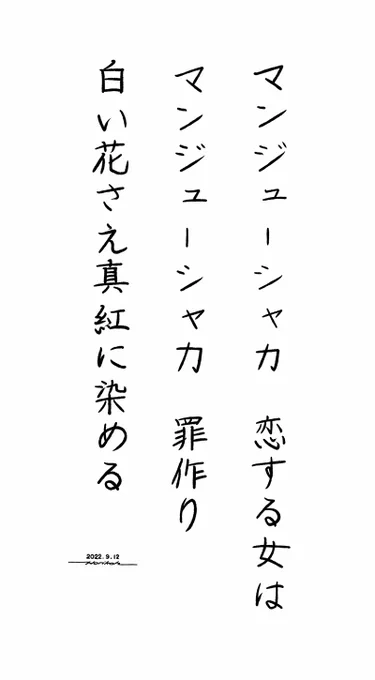 マンジューシャカ　恋する女は
マンジューシャカ　罪作り
白い花さえ真紅に染める
2022.9.12